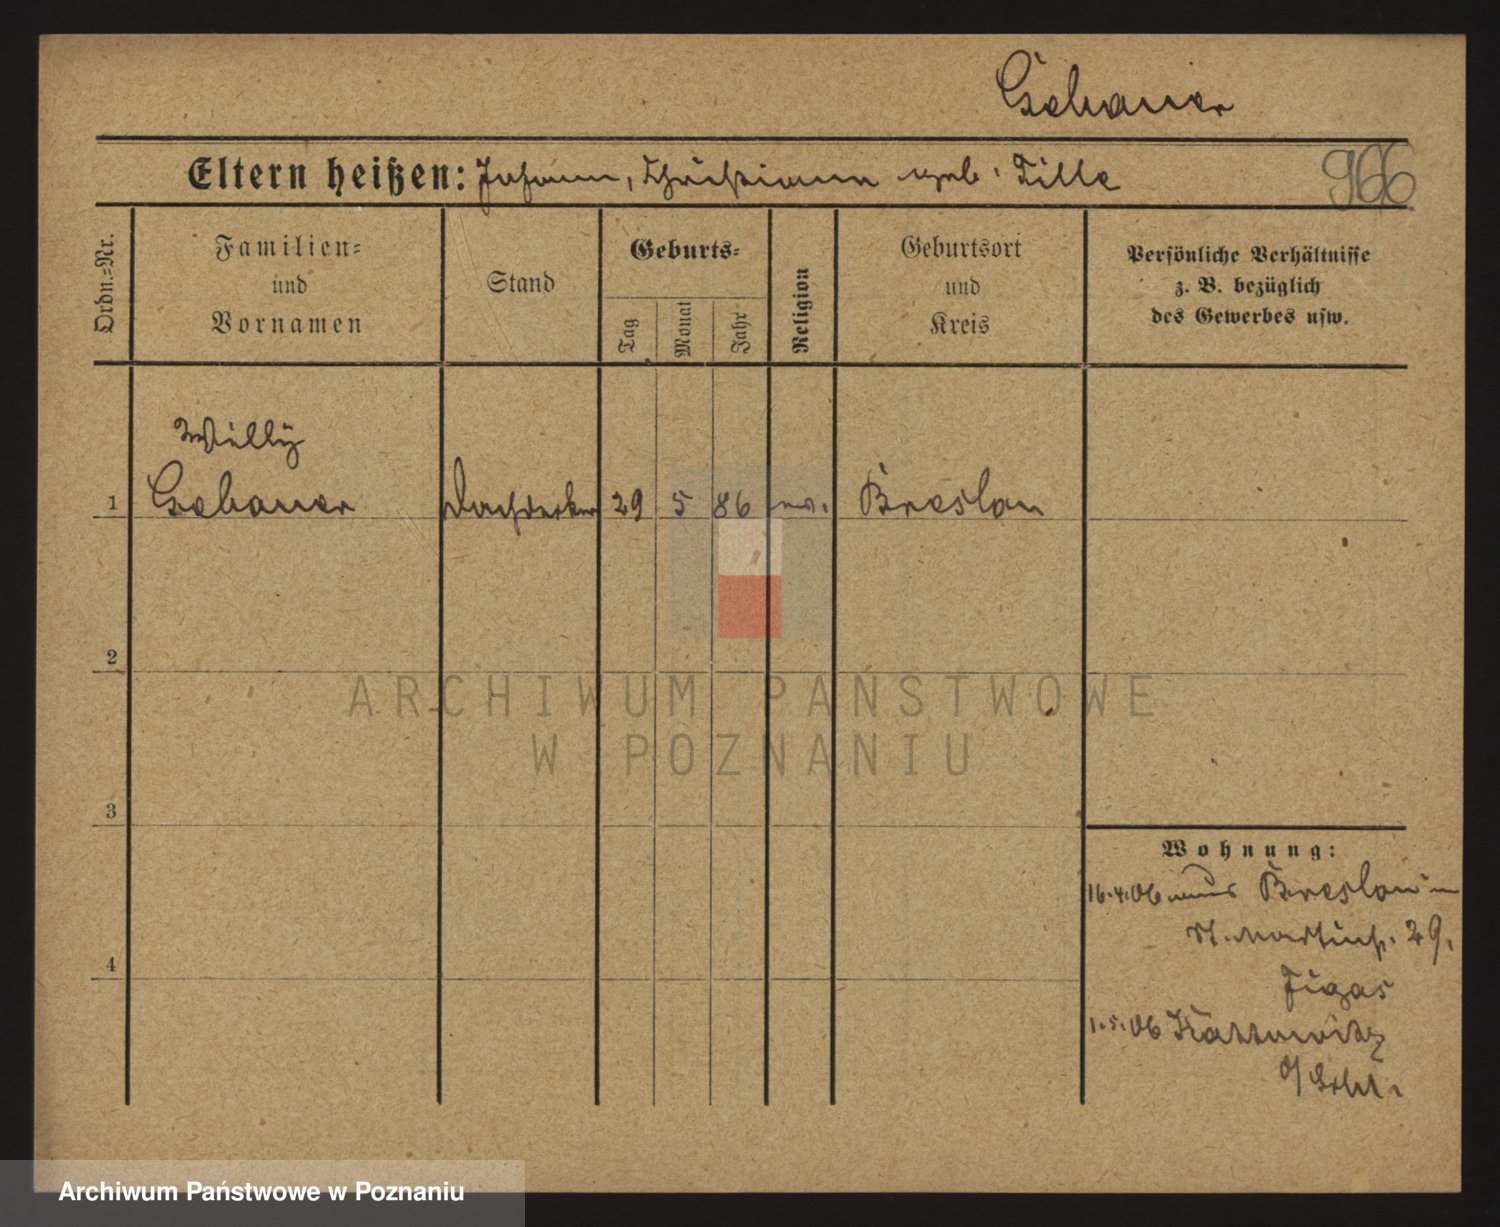 Gebauer
Eltern heißen: Johann, Christiane geb. Tille
966
Ordn.=Nr.
Familien=
und
Vornamen
Stand
Geburts=
Tag
Monat
Jahr
Religion
Geburtsort
und
Kreis
Persönliche Verhältnisse
z. B. bezüglich
des Gewerbes usw.
Willy
1 Gebauer Dachdecker 29 5 86 ev. Breslau
2
3
4
ARCHIWUM PAŃSTWOWE
W POZNANIU
Wohnung:
16.4.06 aus Breslau
St. Martinstr. 29.
Figas
1.5.06 Kattowitz
O/Schl.
Archiwum Państwowe w Poznaniu